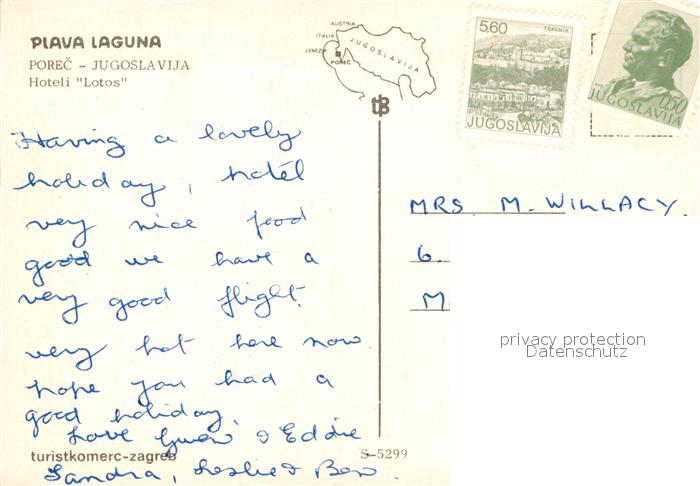 PLAVA LAGUNA
POREČ – JUGOSLAVIJA
Hoteli "Lotos"
AUSTRIA
ITALIA
VENEZIA
POREČ
JUGOSLAVIJA
tz
5,60
TRAVNIK
JUGOSLAVIJA
0,50
JUGOSLAVIJA
Having a lovely
holiday, hotel
very nice food
good we have a
very good flight.
very hot here now.
hope you had a
good holiday.
Love Gwen & Eddie
Sandra, Leslie & Ben.
MRS. M. WILLACY.
6.
M
privacy protection
Datenschutz
turistkomerc-zagreb
S-5299